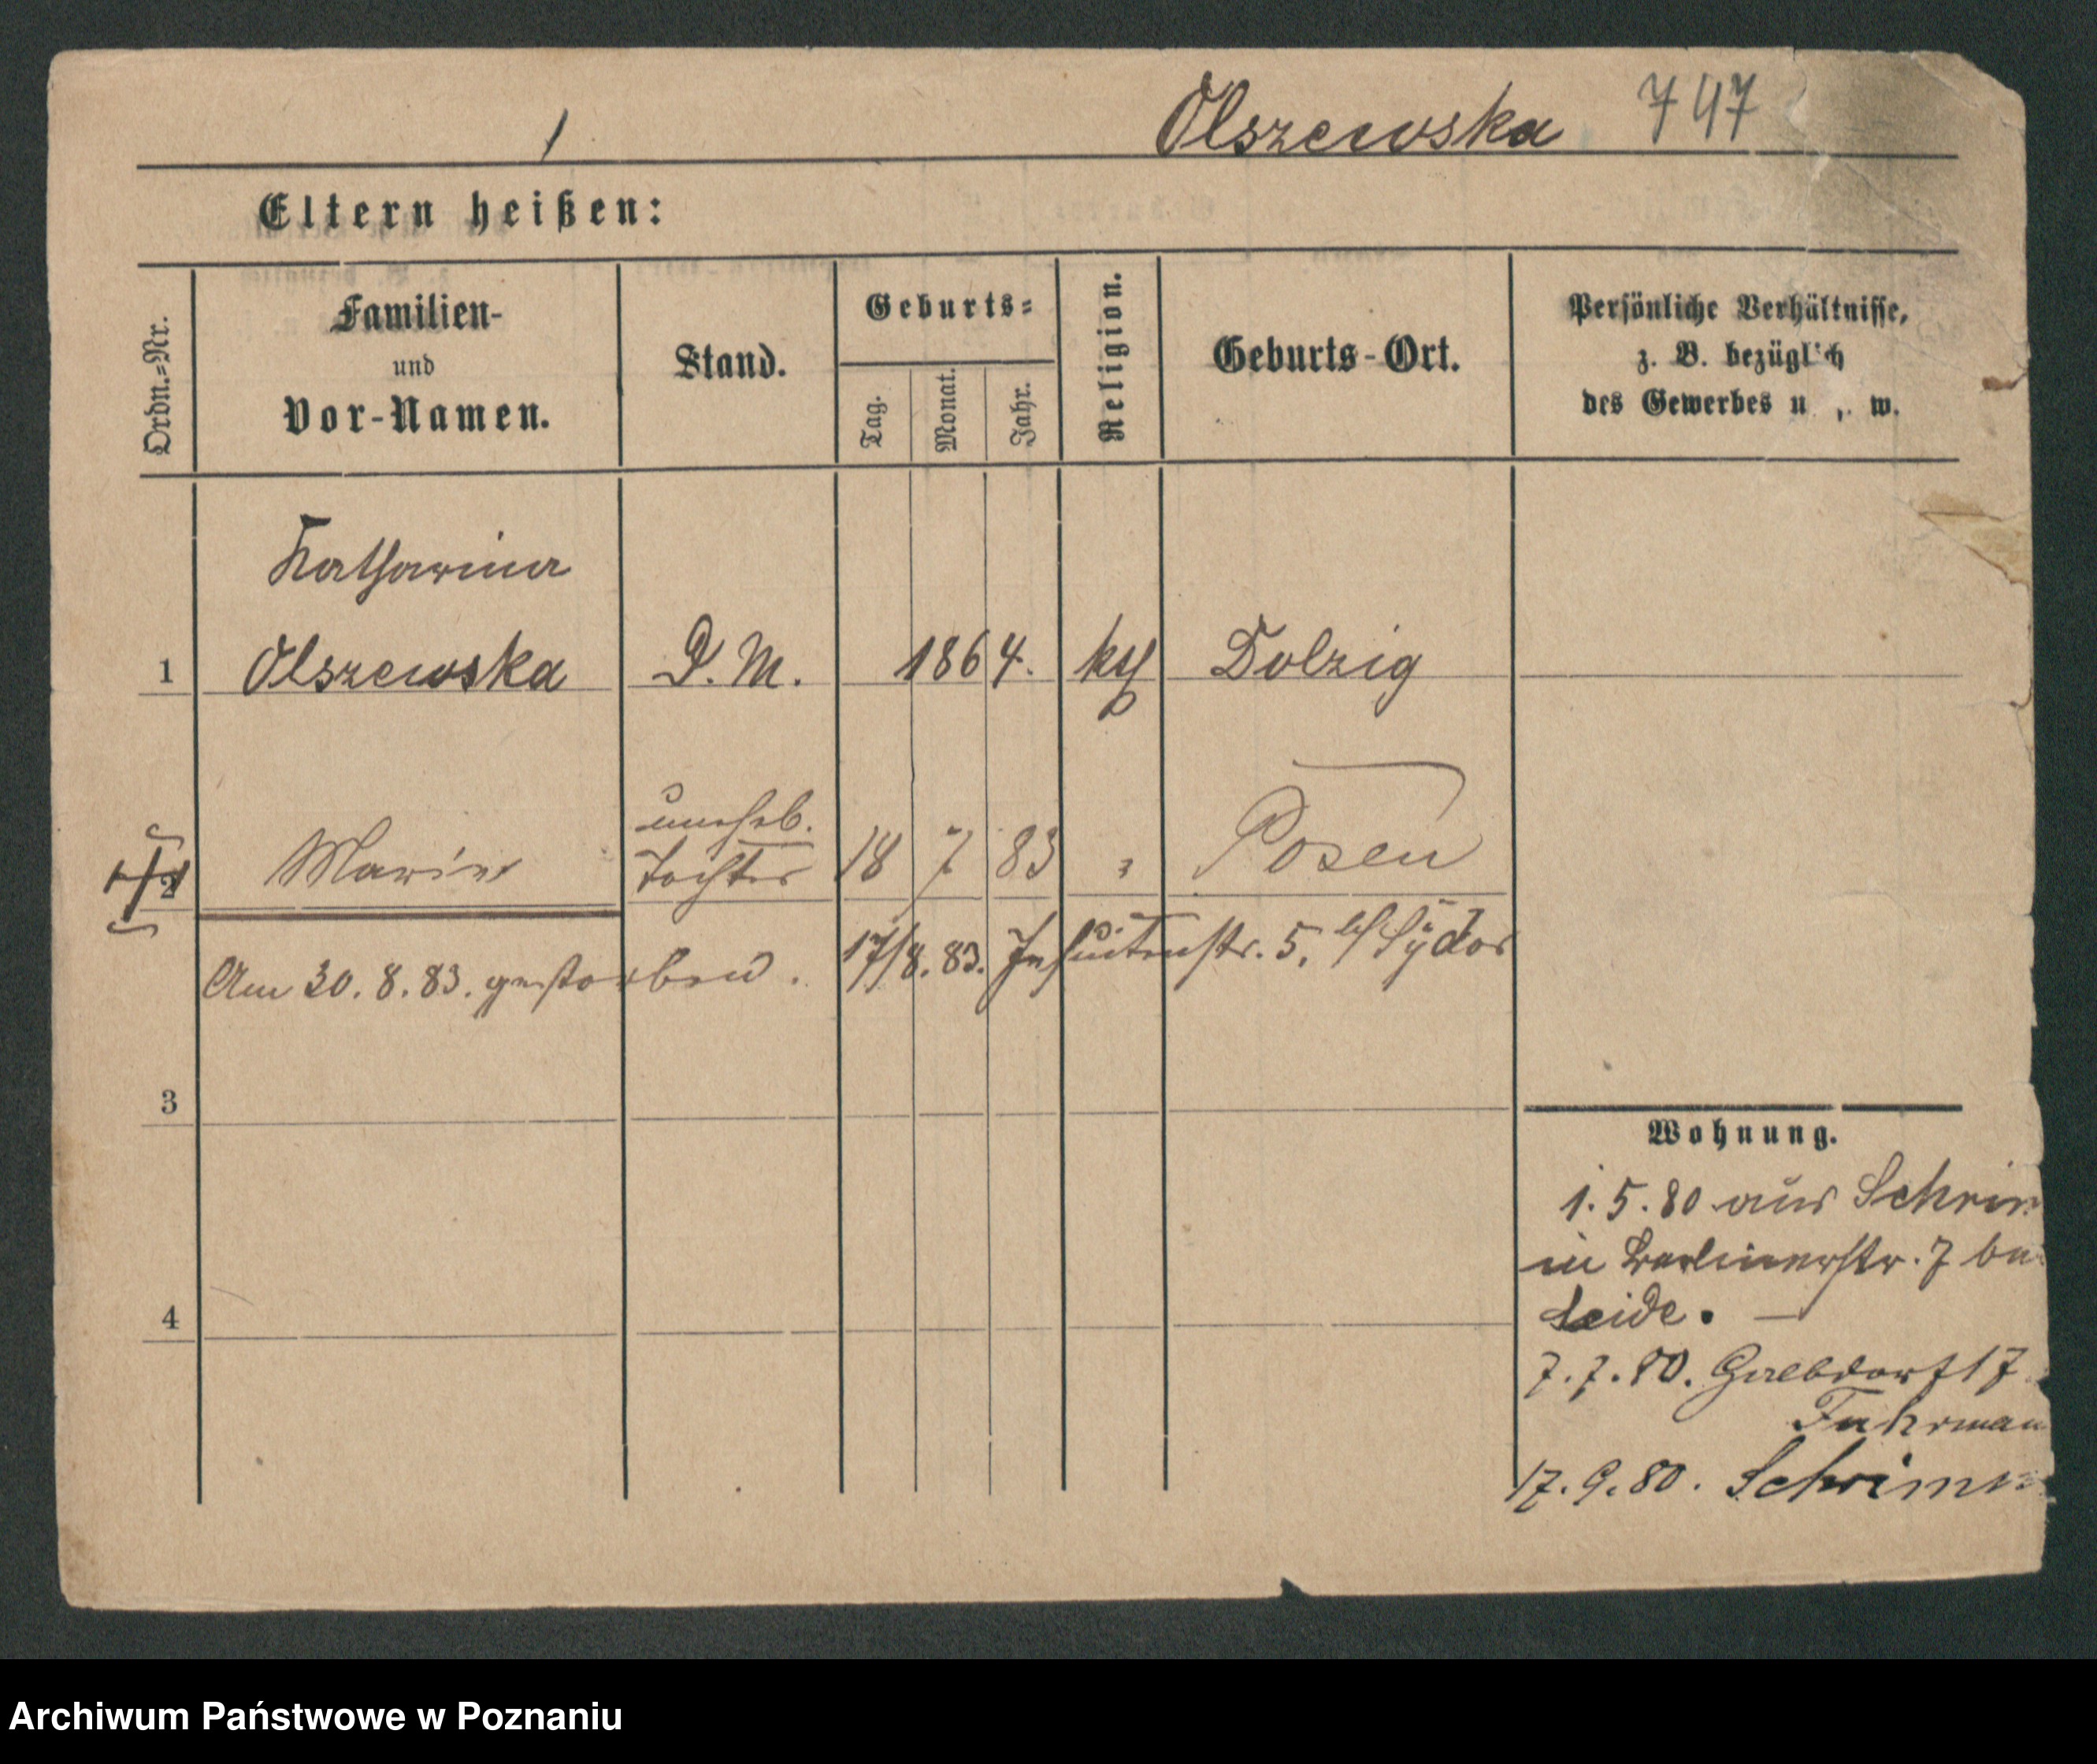 1
Olszewska 747
Eltern heißen:
Ordn.=Nr.
Familien-
und
Vor-Namen.
Stand.
Geburts=
Tag.
Monat.
Jahr.
Religion.
Geburts-Ort.
Persönliche Verhältnisse,
z. B. bezüglich
des Gewerbes u. , w.
Katharina
1 Olszewska D. M. 1864. kth Dolzig
unehel.
2 Marie Tochter 18 7 83 " Posen
Am 30.8.83. gestorben. 17/8.83. Jesuitenstr. 5.
3
4
Wohnung.
1.5.80 aus Schrim
in Berlinerstr. 7 bei
7.7.80. 17
Fuhrman
17.9.80. Schrimm
Archiwum Państwowe w Poznaniu